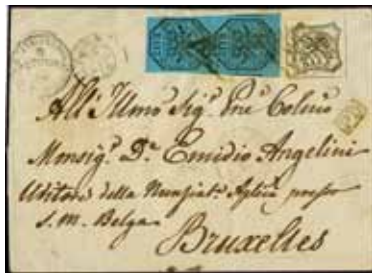 All' Illmo Sigr. Pne Colmo
Monsigr. Dn. Emidio Angelini
Uditore della Nunziatª Aplica presso
S. M. Belga
Bruxelles
PD